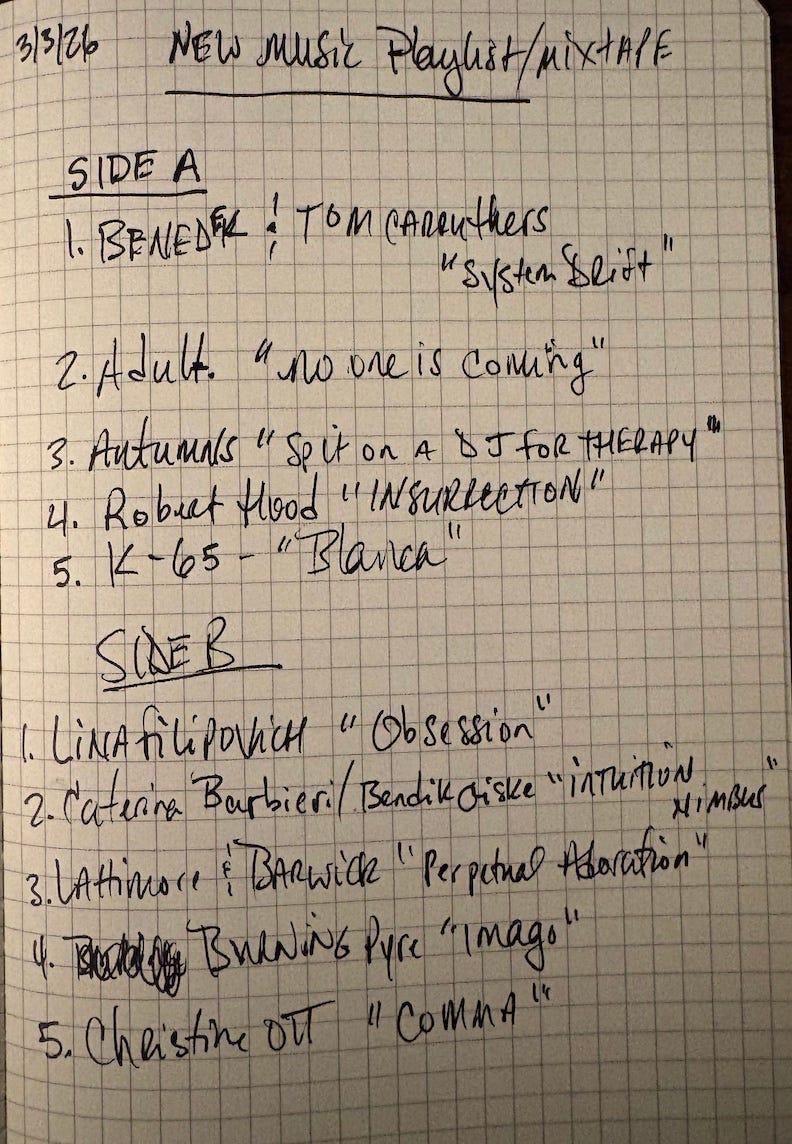 3/3/26 NEW MUSIC Playlist/MIXTAPE
SIDE A
1. BENEDEK & TOM CARRUthers
"System Drift"
2. Adult. "no one is coming"
3. Autumns "Spit on A DJ FOR THERAPY"
4. Robert Hood "INSURRECTION"
5. K-65 - "Blanca"
SIDE B
1. LiNA filipovich "Obsession"
2. Caterina Barbieri/Bendik Giske "iNTUiTiON
NiMBUS"
3. LAttimore & BARwick "Perpetual Adoration"
4. BURNiNG Pyre "Imago"
5. Christine OTT "COMMA"